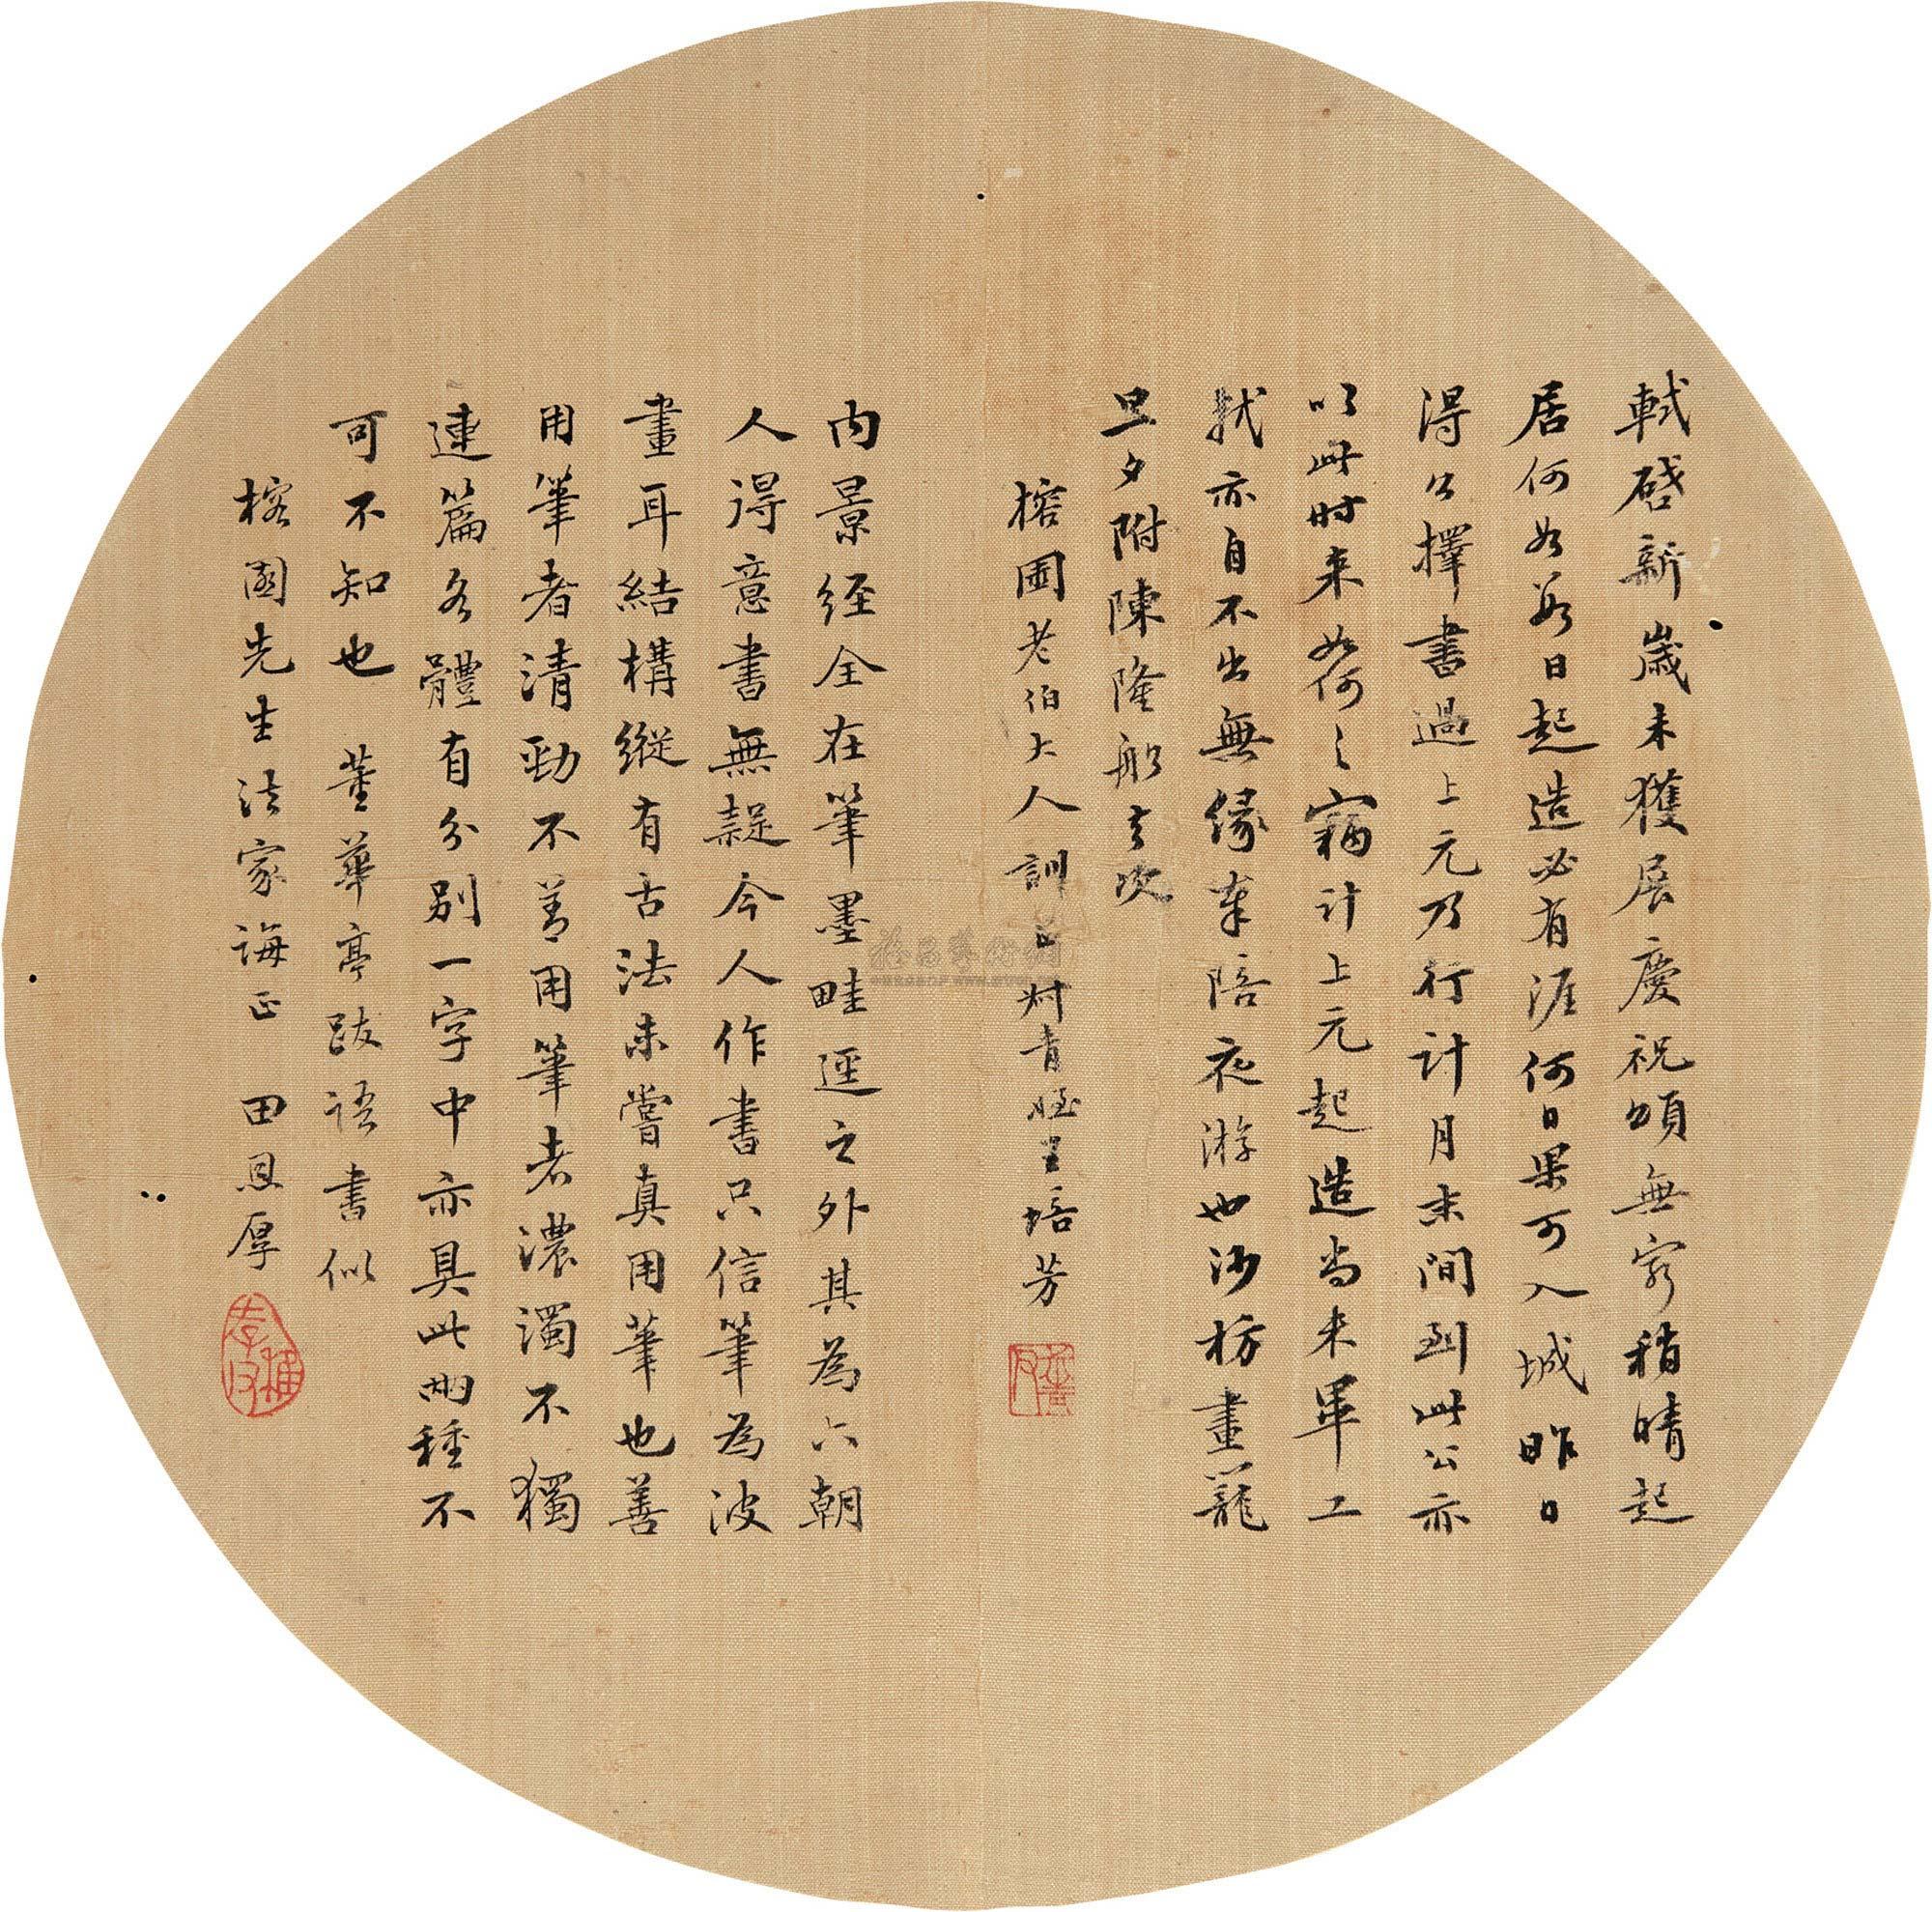 軾啓新歲未獲展慶祝頌無窮稍晴起
居何如數日起造必有涯何日果可入城昨日
得公擇書過上元乃行計月末間到此公亦
以此時来如何〻竊計上元起造尚未畢工
軾亦自不出無緣奉陪夜游也沙枋畫籠
旦夕附陳隆船去次
榕圃老伯大人訓 世姪王培芳
内景经全在筆墨畦逕之外其為六朝
人得意書無疑今人作書只信筆為波
畫耳結構縱有古法未嘗真用筆也善
用筆者清勁不善用筆者濃濁不獨
連篇各體有分别一字中亦具此兩種不
可不知也 董華亭跋语書似
榕圃先生法家誨正 田恩厚